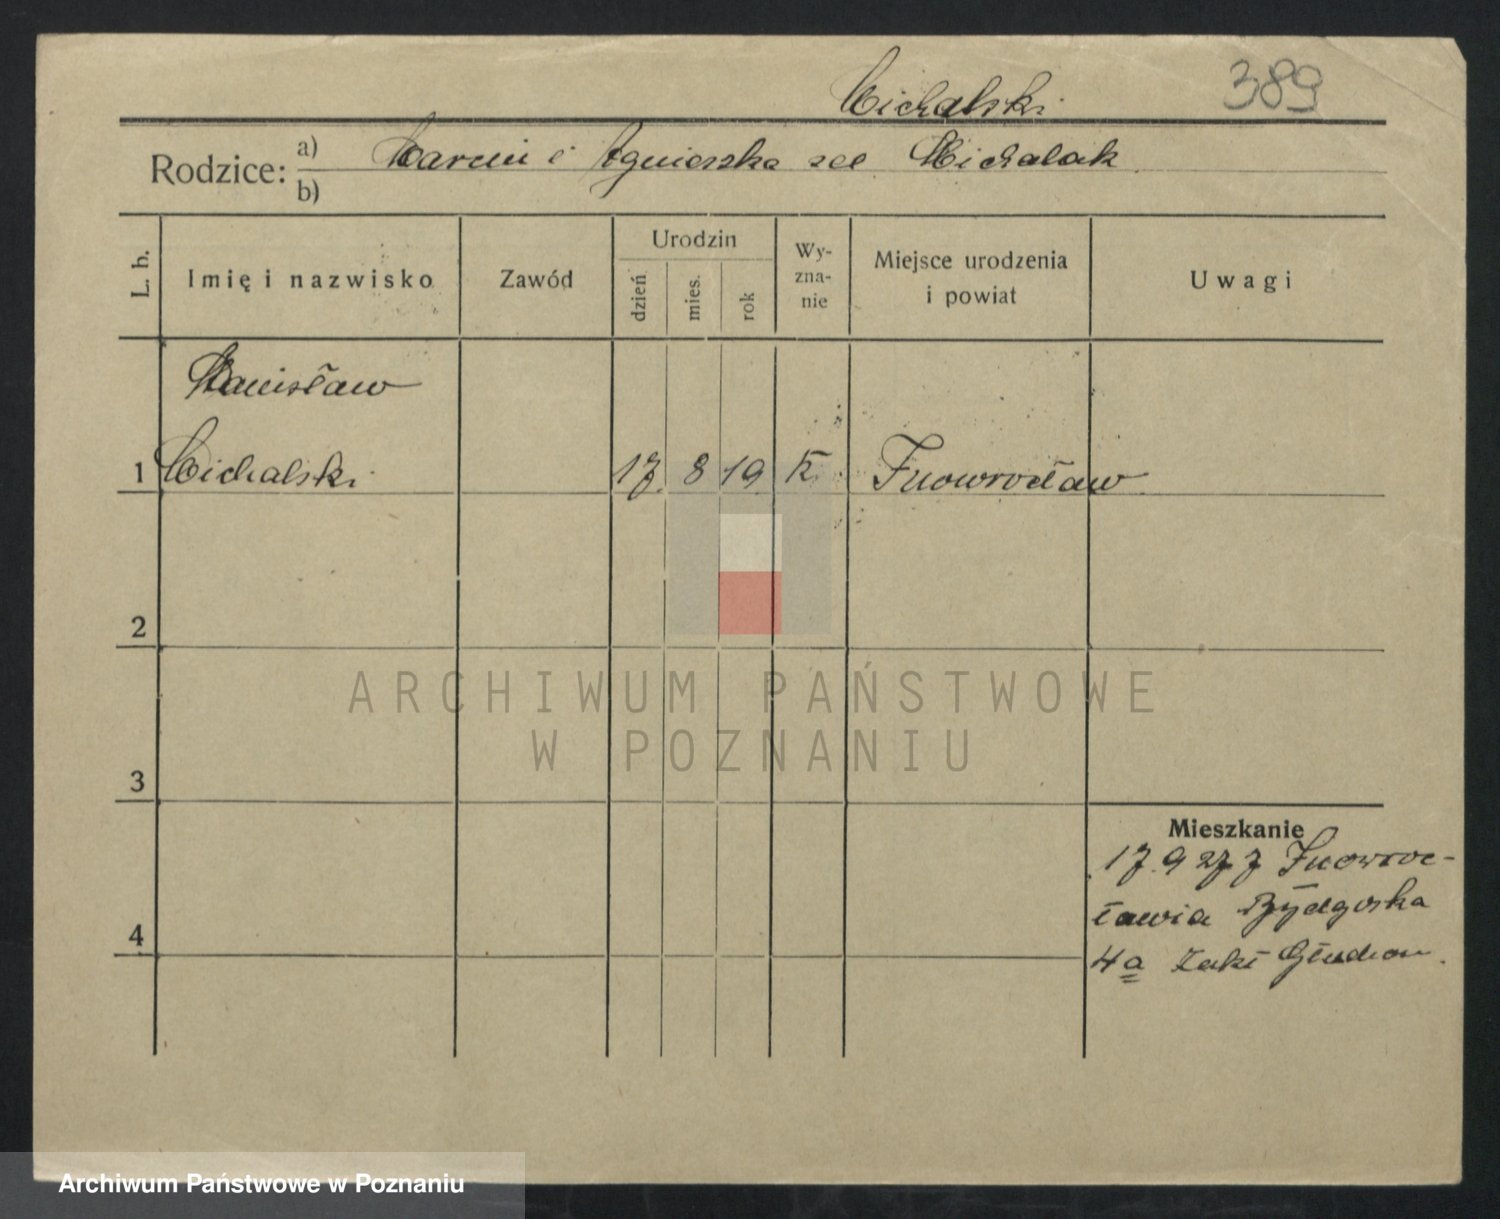 Michalski 389
Rodzice: a) Marcin i Agnieszka zd Michalak
b)
L. b. Imię i nazwisko Zawód Urodzin dzień mies. rok Wy-zna-nie Miejsce urodzenia i powiat Uwagi
Stanisław
1 Michalski 17. 8 19 K. Inowrocław
2
3
Mieszkanie
17.9 27 z Inowroc-
4 ławia Bydgoska
4a Zakł
ARCHIWUM PAŃSTWOWE
W POZNANIU
Archiwum Państwowe w Poznaniu